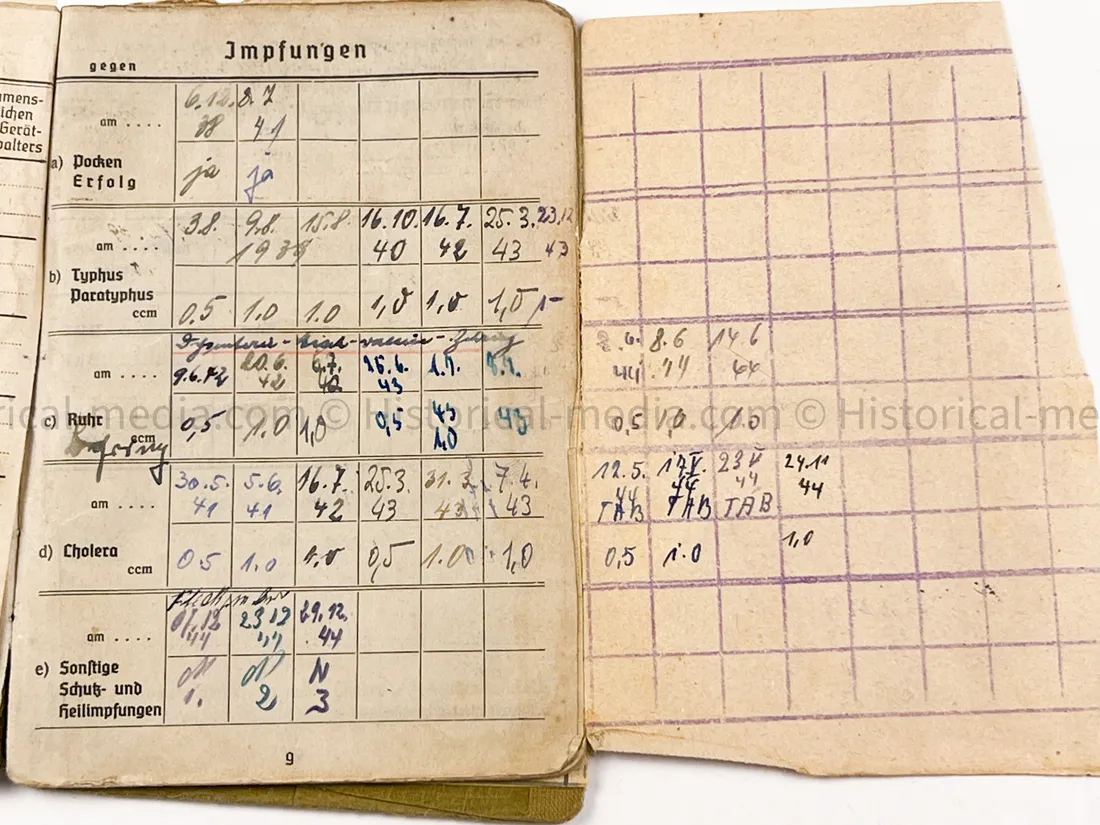 Impfungen
gegen
mens-
lichen
Gerät-
alters
6.12. 8.7
am .... 38 41
a) Pocken
Erfolg ja ja
3.8. 9.8. 15.8. 16.10. 16.7. 25.3. 23.12
am .... 1938 40 42 43 43
b) Typhus
Paratyphus
ccm 0.5 1.0 1.0 1,0 1,0 1,0
8.6 14.6
am .... 9.6.42 20.6. 42 25.6. 43 44 44 44
c) Ruhr 0,5 1.0 1,0 0,5 43 1,0 43 0,5 1,0 1.0
ccm
Historical-media.com © Historical-me
30.5. 5.6. 16.7. 25.3. 31.3. 7.4. 12.5. 17.V. 23 V 24.11
am .... 41 41 42 43 43 43 44 44 44 44
TAB TAB TAB
d) Cholera
ccm 0.5 1.0 1,0 0,5 1.0 1,0 0,5 1.0 1,0
23 12 29.12.
am .... 44 44 44
e) Sonstige
Schutz- und
Heilimpfungen N
1. 2 3
9